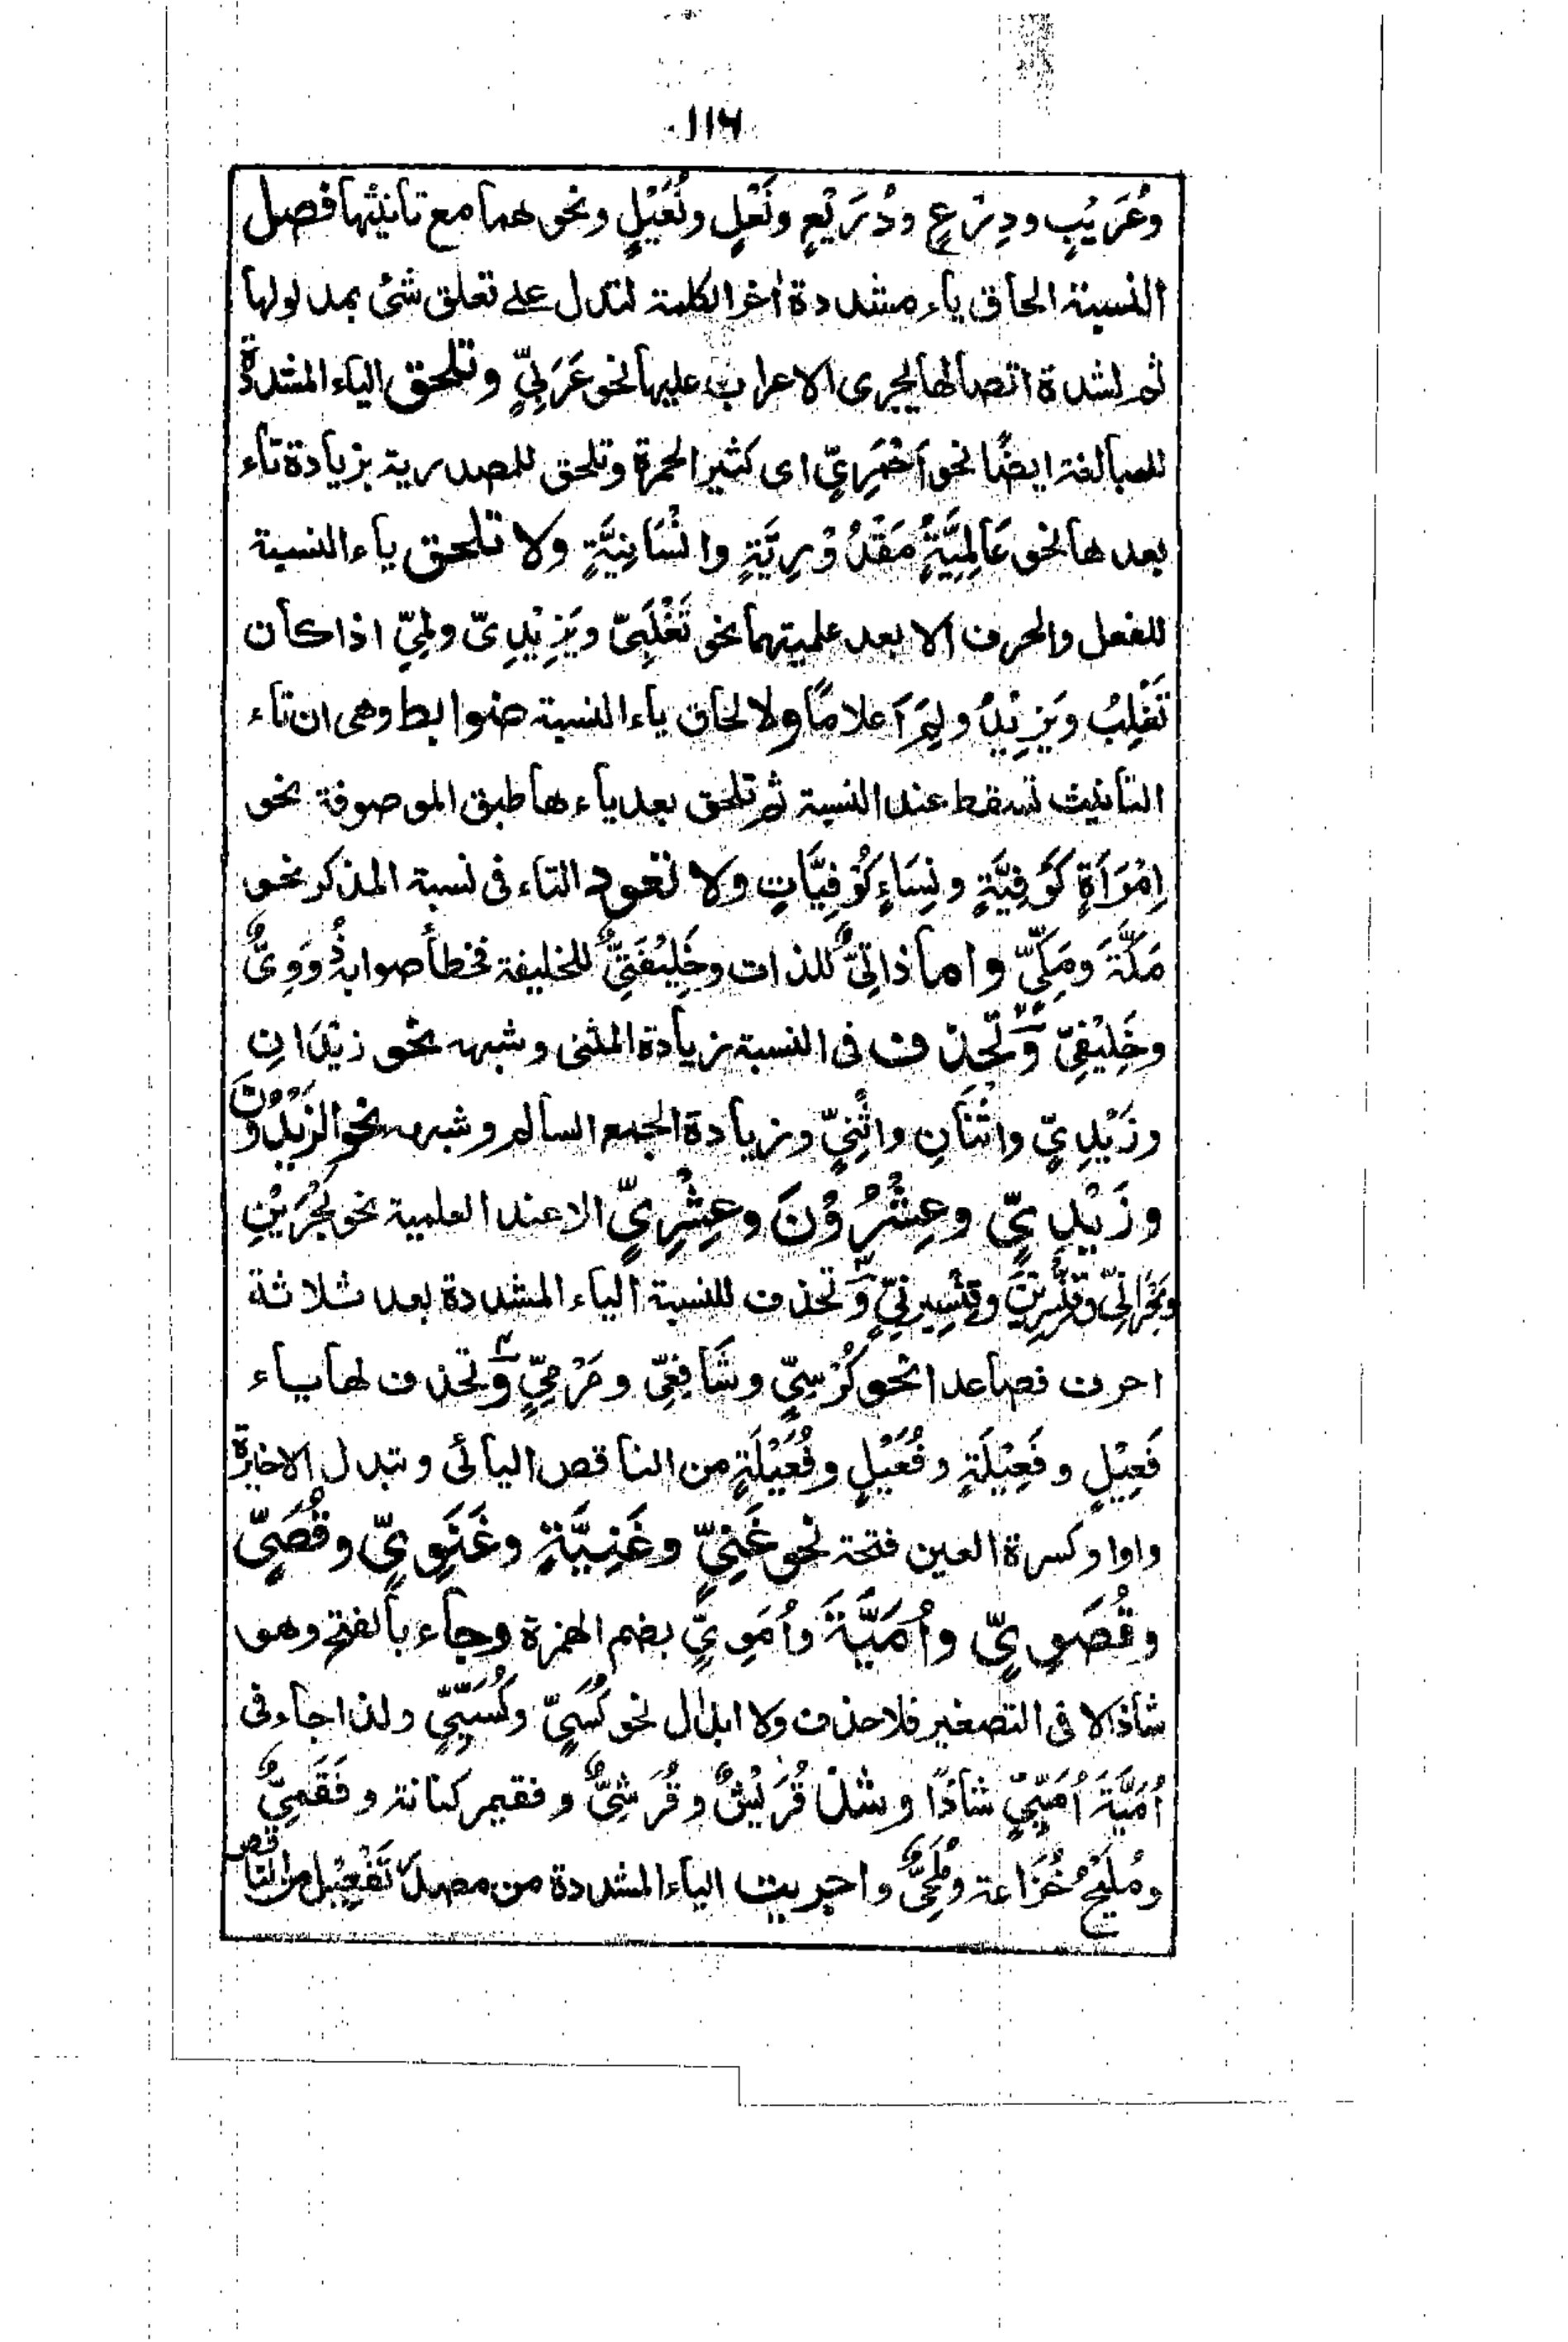 ۱۱۶
وعُرَيْبٍ ودِرْعٍ ودُرَيْعٍ ونَعْلٍ ونُعَيْلٍ ونحوهما مع تانيثها فصل
النسبة الحاق ياء مشددة اٰخر الكلمة لتدل على تعلق شئ بمدلولها
ثم لشدة اتصالها يجرى الاعراب عليها نحو عَرَبِيٍّ وتلحق الياء المشددة
للمبالغة ايضًا نحو اَحْمَرِيٍّ اى كثير الحمرة وتلحق للمصدرية بزيادة تاء
بعدها نحو عَالِمِيَّةٍ مَقْدُوْرِيَّةٍ وانْسَانِيَّةٍ ولا تلحق ياء النسبة
للفعل والحرف الا بعد علميتهما نحو تَغْلِبَىّ ويَزِيْدِىّ ولِمِيٍّ اذا كان
تَغْلِبُ ويَزِيْدُ ولِمَ اَعلامًا ولالحاق ياء النسبة ضوابط وهى ان تاء
التانيث تسقط عند النسبة ثم تلحق بعد ياءها طبق الموصوفة نحو
اِمْرَأَةٍ كُوْفِيَّةٍ ونِسَاءٍ كُوْفِيَّاتٍ ولا تعود التاء فى نسبة المذكر نحو
مَكَّةَ ومَكِّيّ واما ذاتِيٌّ للذات وخَلِيْفَتِيٌّ للخليفة فخطأ صوابه ذُوَوِىٌّ
وخَلِيْفِيّ وتحذف فى النسبة زيادة المثنى وشبهه نحو زيْدَانِ
وزَيْدِيٍّ واثْنَانِ واثْنِيٍّ وزيادة الجمع السالم وشبهه نحو الزَيْدُوْنَ
وزَيْدِيٍّ وعِشْرُوْنَ وعِشْرِيٍّ الا عند العلمية نحو بَحْرَيْنِ
وبَحْرَانِيّ وقِنَّسْرِيْنَ وقِنَّسْرِيْنِيٍّ وتحذف للنسبة الياء المشددة بعد ثلاثة
احرف فصاعدا نحو كُرْسِيٍّ وشَافِعِيّ ومَرْمِيٍّ وتحذف لها ياء
فَعِيْلٍ وفَعِيْلَةٍ وفُعَيْلٍ وفُعَيْلَةٍ من الناقص اليائى وتبدل الاخيرة
واوا وكسرة العين فتحة نحو غَنِيٍّ وغَنِيَّةٍ وغَنَوِيٍّ وقُصَيٍّ
وقُصَوِيٍّ واُمَيَّةَ واُمَوِيٍّ بضم الهمزة وجاء بالفتح وهو
شاذ الا فى التصغير فلا حذف ولا ابدال نحو كُسَيٍّ وكُسَيِّيٍّ ولذا جاء فى
اُمَيَّةَ اُمَيِّيٍّ شاذًا وشذ قُرَيْشٌ وقُرَشِيٌّ وفقيم كنانة وفَقَمِيٌّ
ومُلَيْحُ خُزَاعة ومُلَحِيٌّ واجريت الياء المشددة من مصدر تَفْعِيْل من الناقص